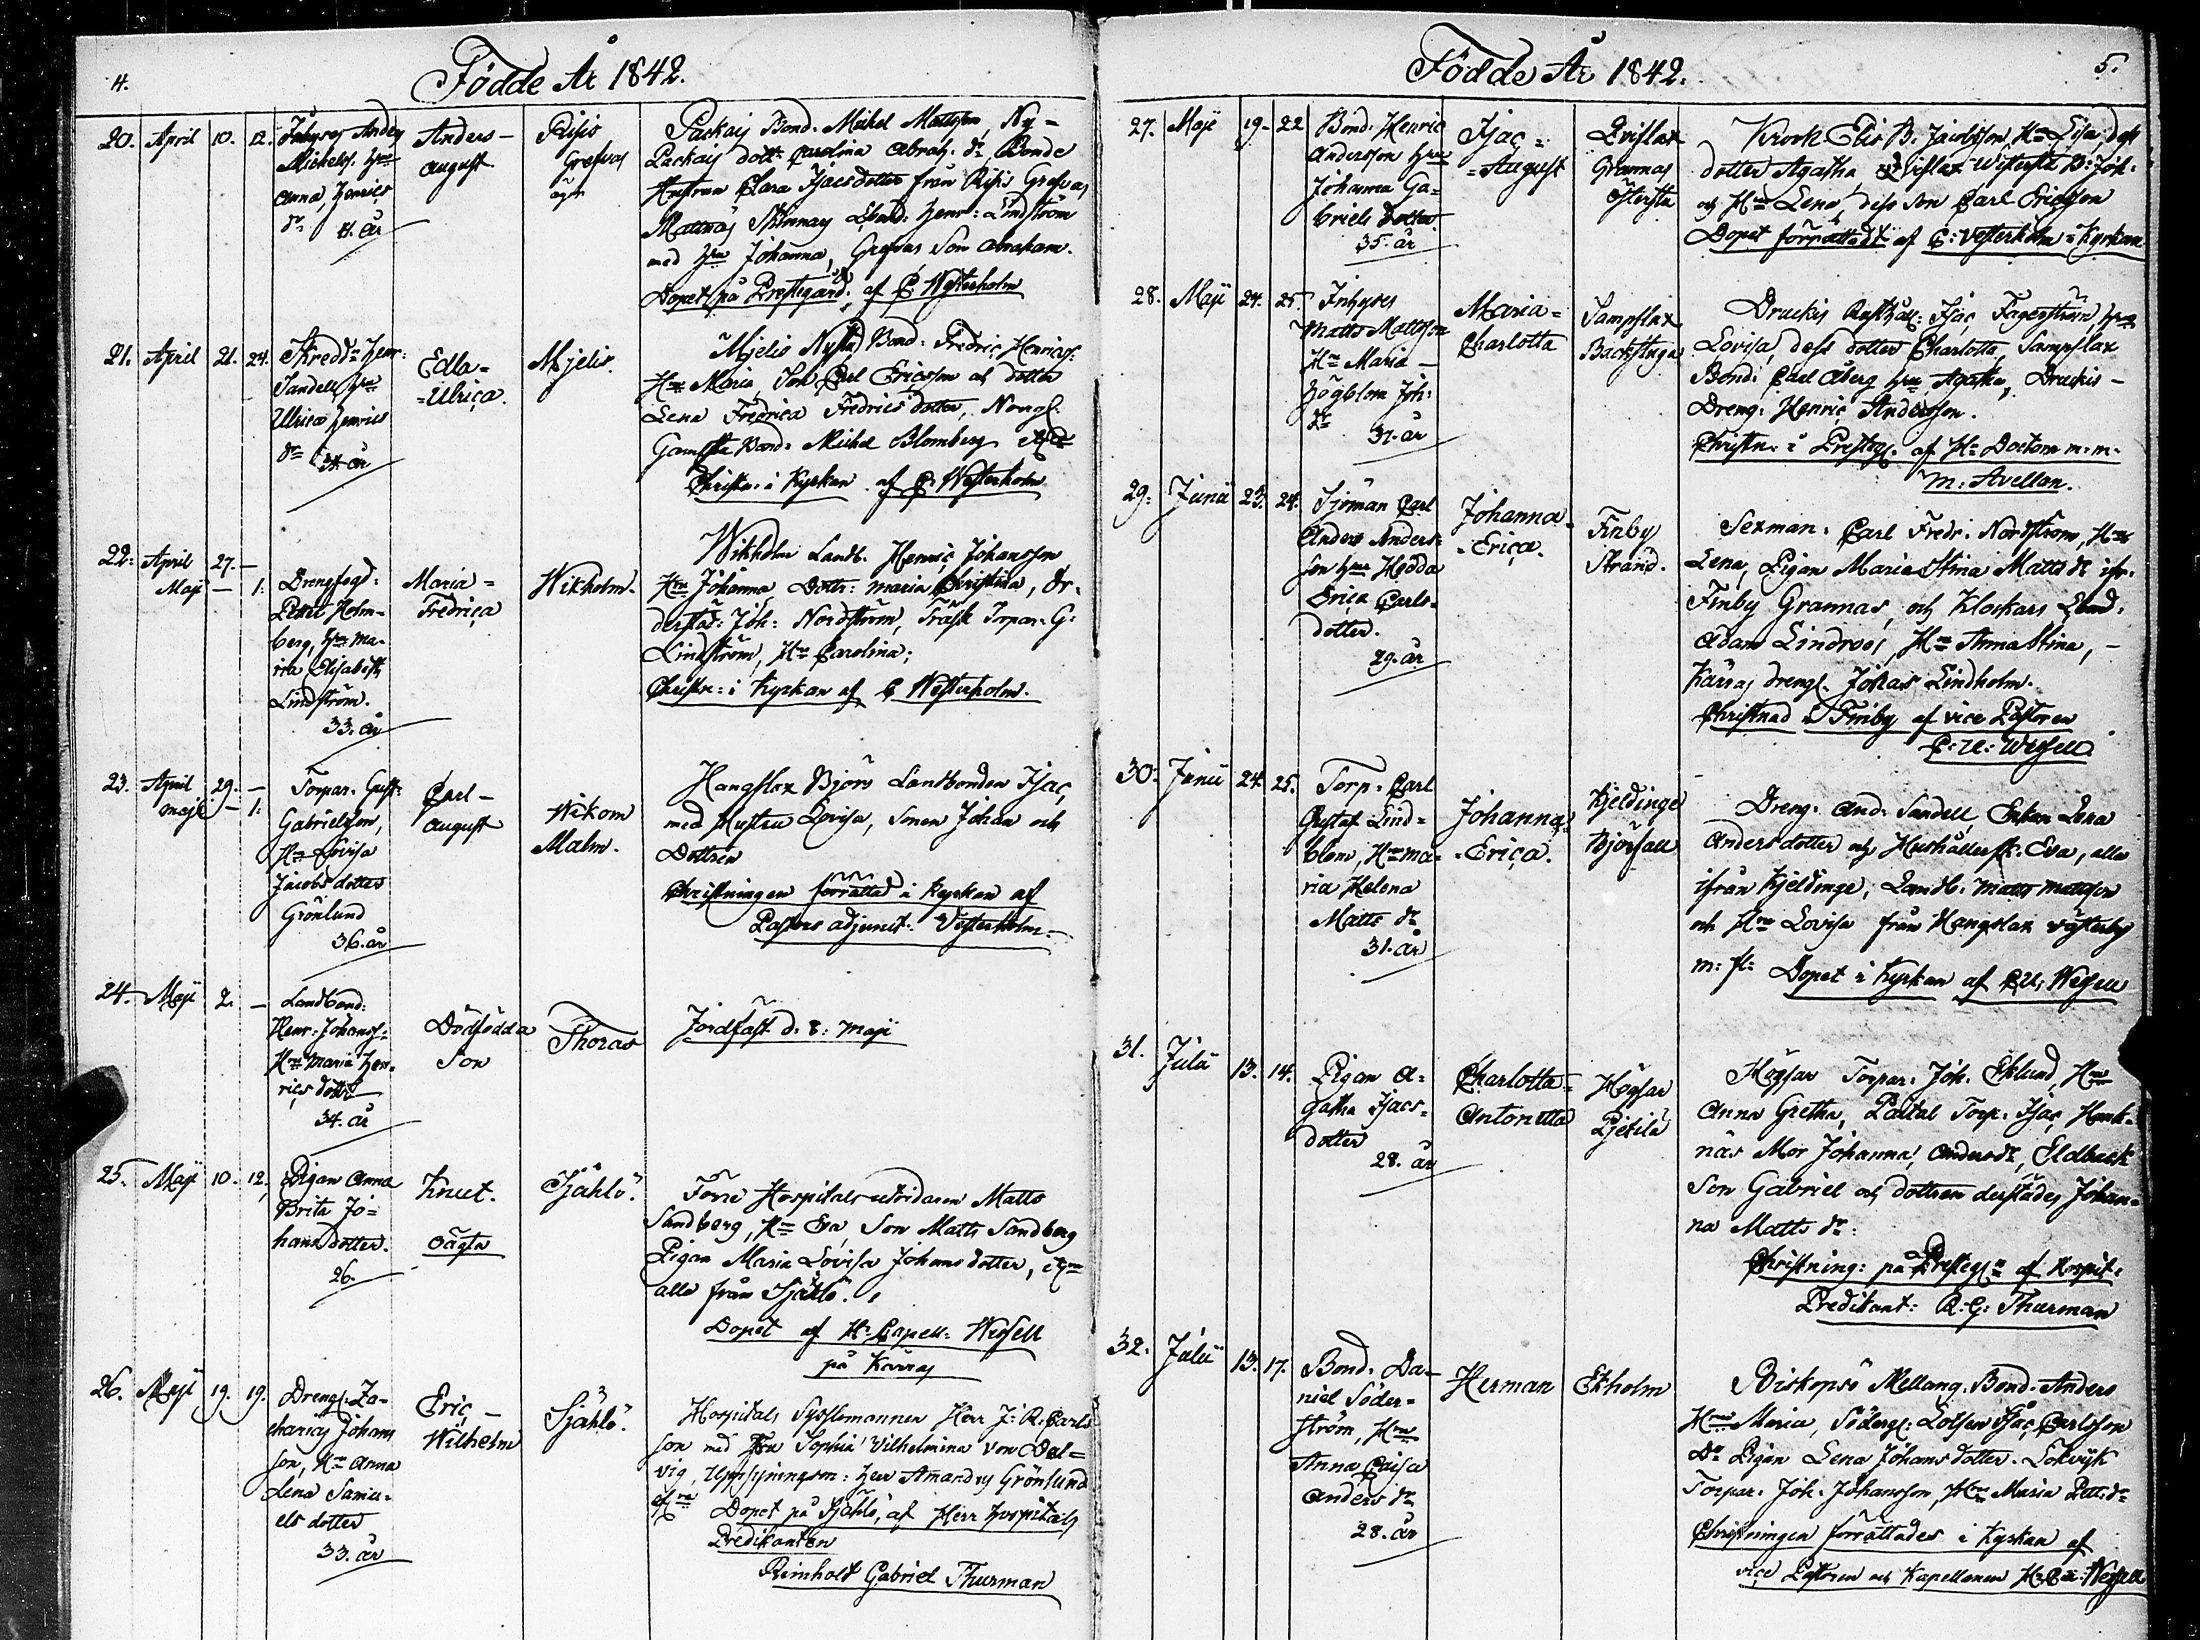 4.
Födde År 1842.
20. April 10. 12.
Inhyses Anders
Michelss. Hru
Anna, Henrics
dr 41. år
Anders-
August
Risis
Grefvas
ägor
Packais Bond. Michel Mattsson, Ny-
Packais dott. Carolina Abrah. dr, Bonde
Hustrun Clara Isacsdotter från Risis Grefvas
Mattnäs Skinnars Lbond: Henr: Lindström
med Hru Johanna, Grefvas Son Abraham.
Dopet på Prestegård. af C Westerholm
21. April 21. 24.
Skredd: Henr:
Sandell, Hru
Ulrica Henrics
dr 34 år
Edla=
=Ulrica.
Mjelis.
Mjelis Nystu Bond: Fredric Henricss.
Hru Maria, Son Carl Ericsson och dotter
Lena Fredrica Fredricsdotter,
Gamsta Bond: Michel Blomberg
Christn: i Kyrkan af C. Westerholm
22. April 27. –
Maji – 1.
Drengfogd:
Petter Holm-
berg, Hru Ma-
ria Elisabeth
Lindström.
33. år
Maria=
Fredrica
Wikholm.
Wikholm Landb. Henric Johansson
Hru Johanna, Dottr: Maria Christina, Dr.
derstäd: Joh: Nordström, Träsk Torpar. G:
Lindström, Hru Carolina;
Christn: i Kyrkan af C Westerholm.
23. April 29. –
Maji – 1.
Torpar. Gust:
Gabrielsson,
Hru Lovisa
Jacobsdotter
Grönlund
36. år
Carl-
August
Wikom
Malm.
Hangslax Björs Landbonden Isac,
med Hustru Lovisa, Sonen Johan och
Dottren
Christningen förrättad i Kyrkan af
Pastors adjunct: Vesterholm.
24. Maji 2. –
Landbond:
Henr: Johanss:
Hru Maria Hen-
rics dotter
34. år
Dödfödda
Son
Thoras
Jordfäst d. 8. Maji
25. Maji 10. 12.
Pigan Anna
Brita Jo-
hansdotter.
26.
Knut.
oägta
Själlö.
Förre Hospitals utridaren Matts
Sandberg, Hru Eva, Son Matts Sandberg
Pigan Maria Lovisa Johansdotter,
alla från Själö.
Dopet af Hr Capell: Wesell
på
26. Maji 19. 19.
Drengs. Za-
charias Johans
son, Hru Anna
Lena Samu-
els dotter
33. år
Eric-
Wilhelm
Själlö.
Hospitals Sysslomannen Herr J: R: Carls
son med Fru Sophia Vilhelmina von Dal=
vig, Uppsyningsm: Herr Amandus Grönlund
Dopet på Själö, af Herr Hospitals
Predikanten
Reinholt Gabriel Thurman
Födde År 1842.
5.
27. Maji 19- 22
Bond: Henric
Andersson Hru
Johanna Ga-
briels dotter.
35. år
Isac=
=August
Qviflax
Grannas
Östersta
Krook Elis B. Jacobsson, Hru Lisa, dess
dotter Agatha, Qviflax Westersta B: Joh:
och Hru Lena, dess son Carl Ericsson
Dopet förrättadt af C: Vesterholm i Kyrkan
28. Maji 24. 25.
Inhyses
Matts Mattsson
Hru Maria –
Högblom Joh:
dr 37. år
Maria=
Charlotta
Sampslax
Backstuga
Druckis Rusthåll: Isac Fagerström, Hru
Lovisa, dess dotter Charlotta, Sampslax
Bond: Carl Åberg Hru Agatha, Druckis-
Dreng: Henric Andersson.
Christn: i Prestg. af Hr Doctorn m: m:
M: Avellan.
29. Junii 23. 24.
Sjöman Carl
Anders Anders-
son Hru Hedda
Erica Carls-
dotter.
29. år
Johanna=
=Erica.
Finby
Strand.
Sexman: Carl Fredr: Nordström, Hru
Lena, Pigan Maria Stina Matts dr ifr:
Finby Grannas, och Klockars Lbond:
Adam Lindroos, Hru Anna Stina, -
Kärras drengs. Johas Lindholm.
Christnad i Finby af vice Pastoren
C: U: Wesell.
30. Junii 24. 25.
Torp: Carl
Gustaf Lind=
blom, Hru Ma-
ria Helena
Matts dr
31. år
Johanna
=Erica.
Kjeldinge
Björsall
Dreng: And: Sandell, Enkan Lena
Andersdotter och Hushållersk: Eva, alla
ifrån Kjeldinge, Landb. Matts Mattsson
och Hru Lovisa från Hangslax Västerby
m: fl: Dopet i Kyrkan af CU: Wesell
31. Julii 13. 14.
Pigan A-
gatha Isacs-
dotter
28. år
Charlotta=
Antonetta
Högsar
Pjetilä
Högsar Torpar. Joh. Eklund, Hru
Anna Gretha, Partal Torp: Isac Hank-
näs Mor Johanna, Andersdr, Eldback
Son Gabriel och dottren derstädes Johan-
na Matts dr.
Christning: på Prestegn af Hospit:
Predikant: R: G: Thurman
32. Julii 13. 17.
Bond: Da-
niel Söder-
ström, Hru
Anna Caisa
Anders dr
28. år
Herman
Ekholm
Biskopsö Mellang. Bond: Anders
Hru Maria, Söderg: Lotsen Isac Carlsson
Do Pigan Lena Johansdotter. Lökvik
Torpar. Joh. Johansson, Hru Maria Pett:dr
Christningen förrättades i Kyrkan af
vice Pastoren och Kapellanen H. C: U: Wesell